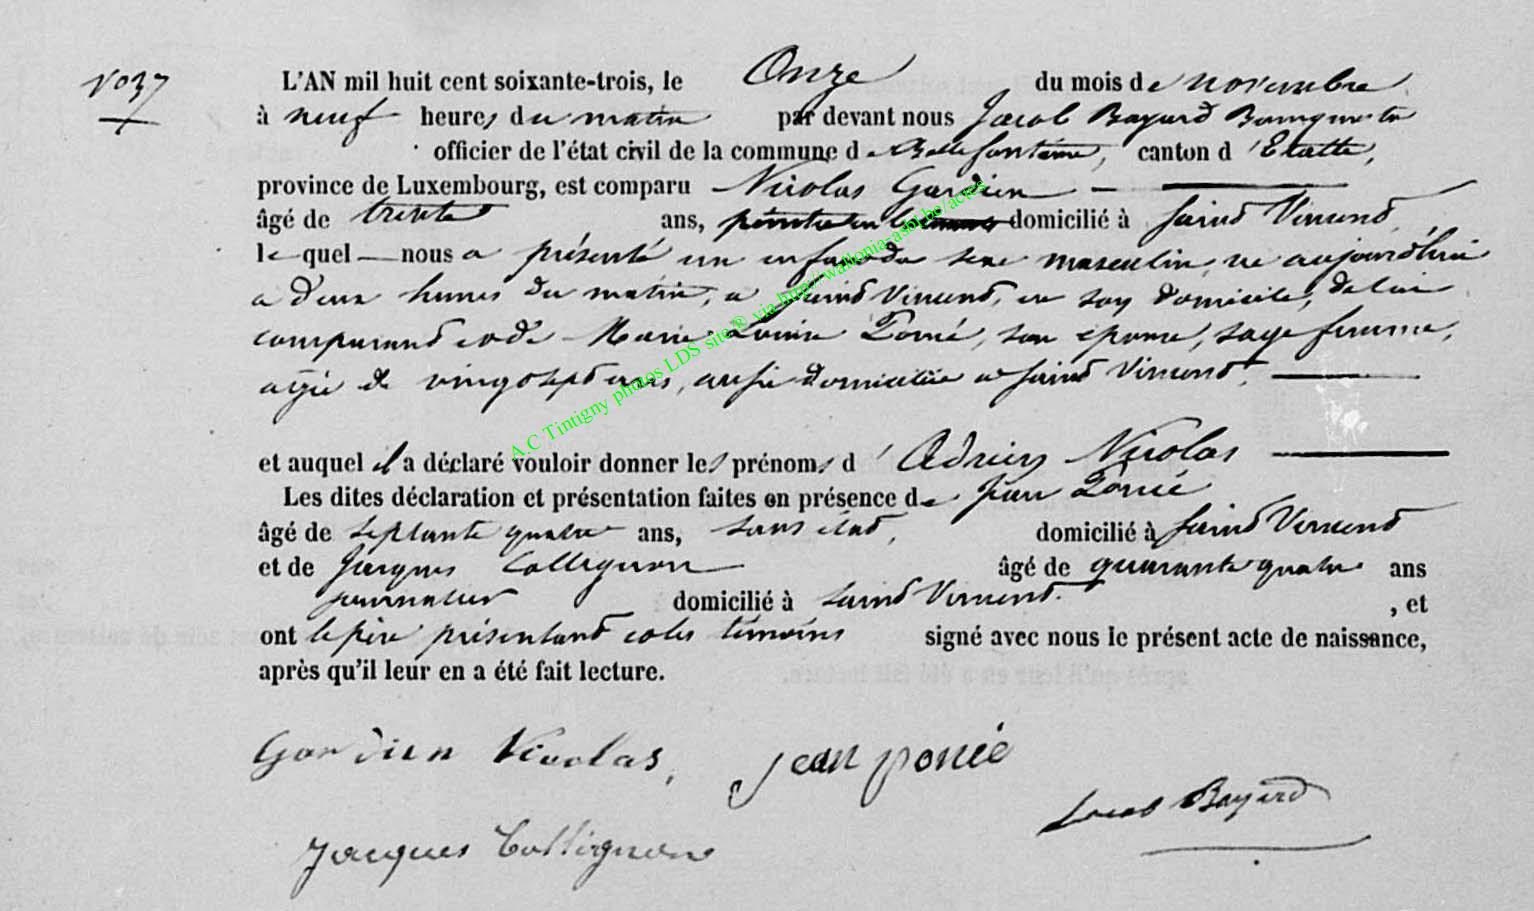 N° 37
L'AN mil huit cent soixante-trois, le Onze du mois de novembre
à neuf heures du matin par devant nous Jacob Bayard Bourgmestre
officier de l'état civil de la commune de Bellefontaine, canton d'Etalle,
province de Luxembourg, est comparu Nicolas Gardien
âgé de trente ans, peintre en domicilié à Saint Vincent,
lequel nous a présenté un enfant du sexe masculin, né aujourd'hui
a deux heures du matin, a Saint Vincent, en son domicile, de lui
comparant et de Marie Louise Poncé, son épouse, sage femme,
agée de vingt sept ans, aussi domiciliée a Saint Vincent,
et auquel il a déclaré vouloir donner les prénoms d'Adrien Nicolas
Les dites déclaration et présentation faites en présence de Jean Poncé
âgé de septante quatre ans, sans état, domicilié à Saint Vincent
et de Jacques Collignon âgé de quarante quatre ans
journalier domicilié à Saint Vincent. , et
ont le père présentant et les témoins signé avec nous le présent acte de naissance,
après qu'il leur en a été fait lecture.
Gardien Nicolas,
jean poncé
Jacob Bayard
Jacques Collignon
A.C Tintigny photos LDS site® via http://wallonia-asbl.be/actes